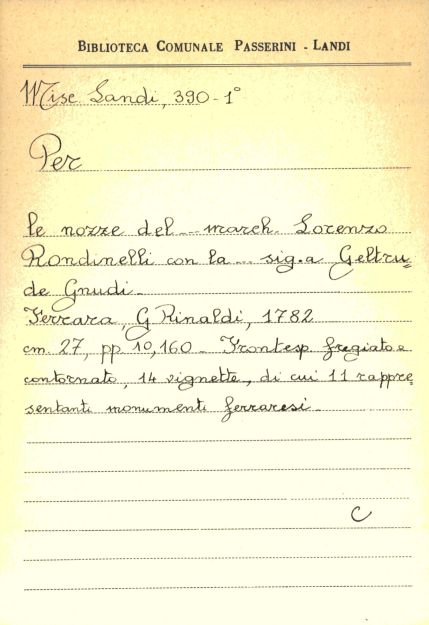 BIBLIOTECA COMUNALE PASSERINI - LANDI
Misc Landi, 390 - 1°
Per
le nozze del ... march. Lorenzo
Rondinelli con la ... sig.a Geltru=
de Gnudi.
Ferrara, G Rinaldi, 1782
cm. 27, pp 10, 160 - Frontesp. fregiato e
contornato, 14 vignette, di cui 11 rappre=
sentanti monumenti ferraresi.
C